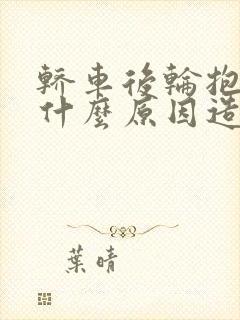 轎車後輪抱
什麼原因造
葉晴